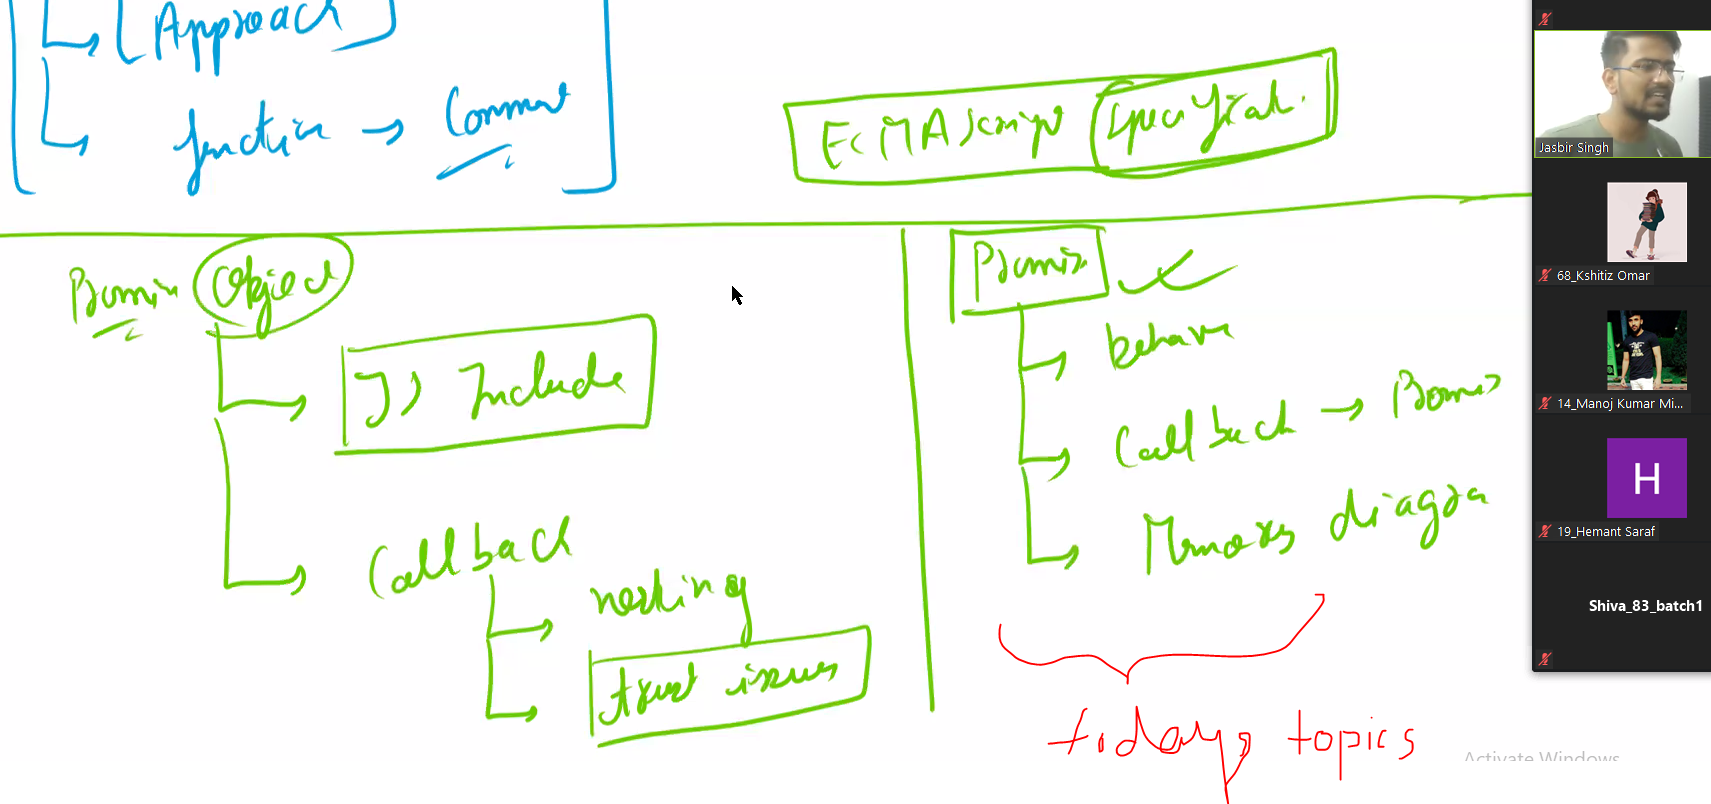 [Approach]
function → Comment
ECMAScript Specificat.
Promise Object
JS Include
Callback
nesting
trust issues
Promise
behave
Callback → Promise
Memory diagra
today's topics
Jasbir Singh
68_Kshitiz Omar
14_Manoj Kumar Mi...
H
19_Hemant Saraf
Shiva_83_batch1
Activate Windows